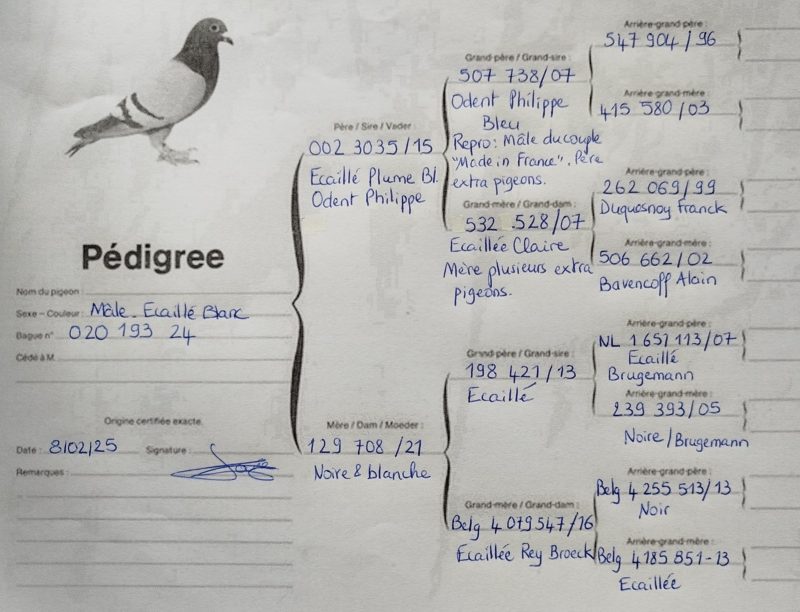 Pédigree
Nom du pigeon :
Sexe - Couleur : Mâle. Ecaillé Blanc
Bague n° 020 193 24
Cédé à M.
Origine certifiée exacte.
Date : 8/02/25 Signature :
Remarques :
Père / Sire / Vader :
002 3035 /15
Ecaillé Plume Bl.
Odent Philippe
Mère / Dam / Moeder :
129 708 /21
Noire & blanche
Grand-père / Grand-sire :
507 738/07
Odent Philippe
Bleu
Repro : Mâle du couple
"Made in France". Père
extra pigeons.
Grand-mère / Grand-dam :
532 528/07
Ecaillée Claire
Mère plusieurs extra
pigeons.
Grand-père / Grand-sire :
198 421/13
Ecaillé
Grand-mère / Grand-dam :
Belg 4 079 547/16
Ecaillée Rey Broeck
Arrière-grand-père :
547 904/96
Arrière-grand-mère :
415 580/03
Arrière-grand-père :
262 069/99
Duquesnoy Franck
Arrière-grand-mère :
506 662/02
Bavencoff Alain
Arrière-grand-père :
NL 1 651 113/07
Ecaillé
Brugemann
Arrière-grand-mère :
239 393/05
Noire/Brugemann
Arrière-grand-père :
Belg 4 255 513/13
Noir
Arrière-grand-mère :
Belg 4 185 851-13
Ecaillée